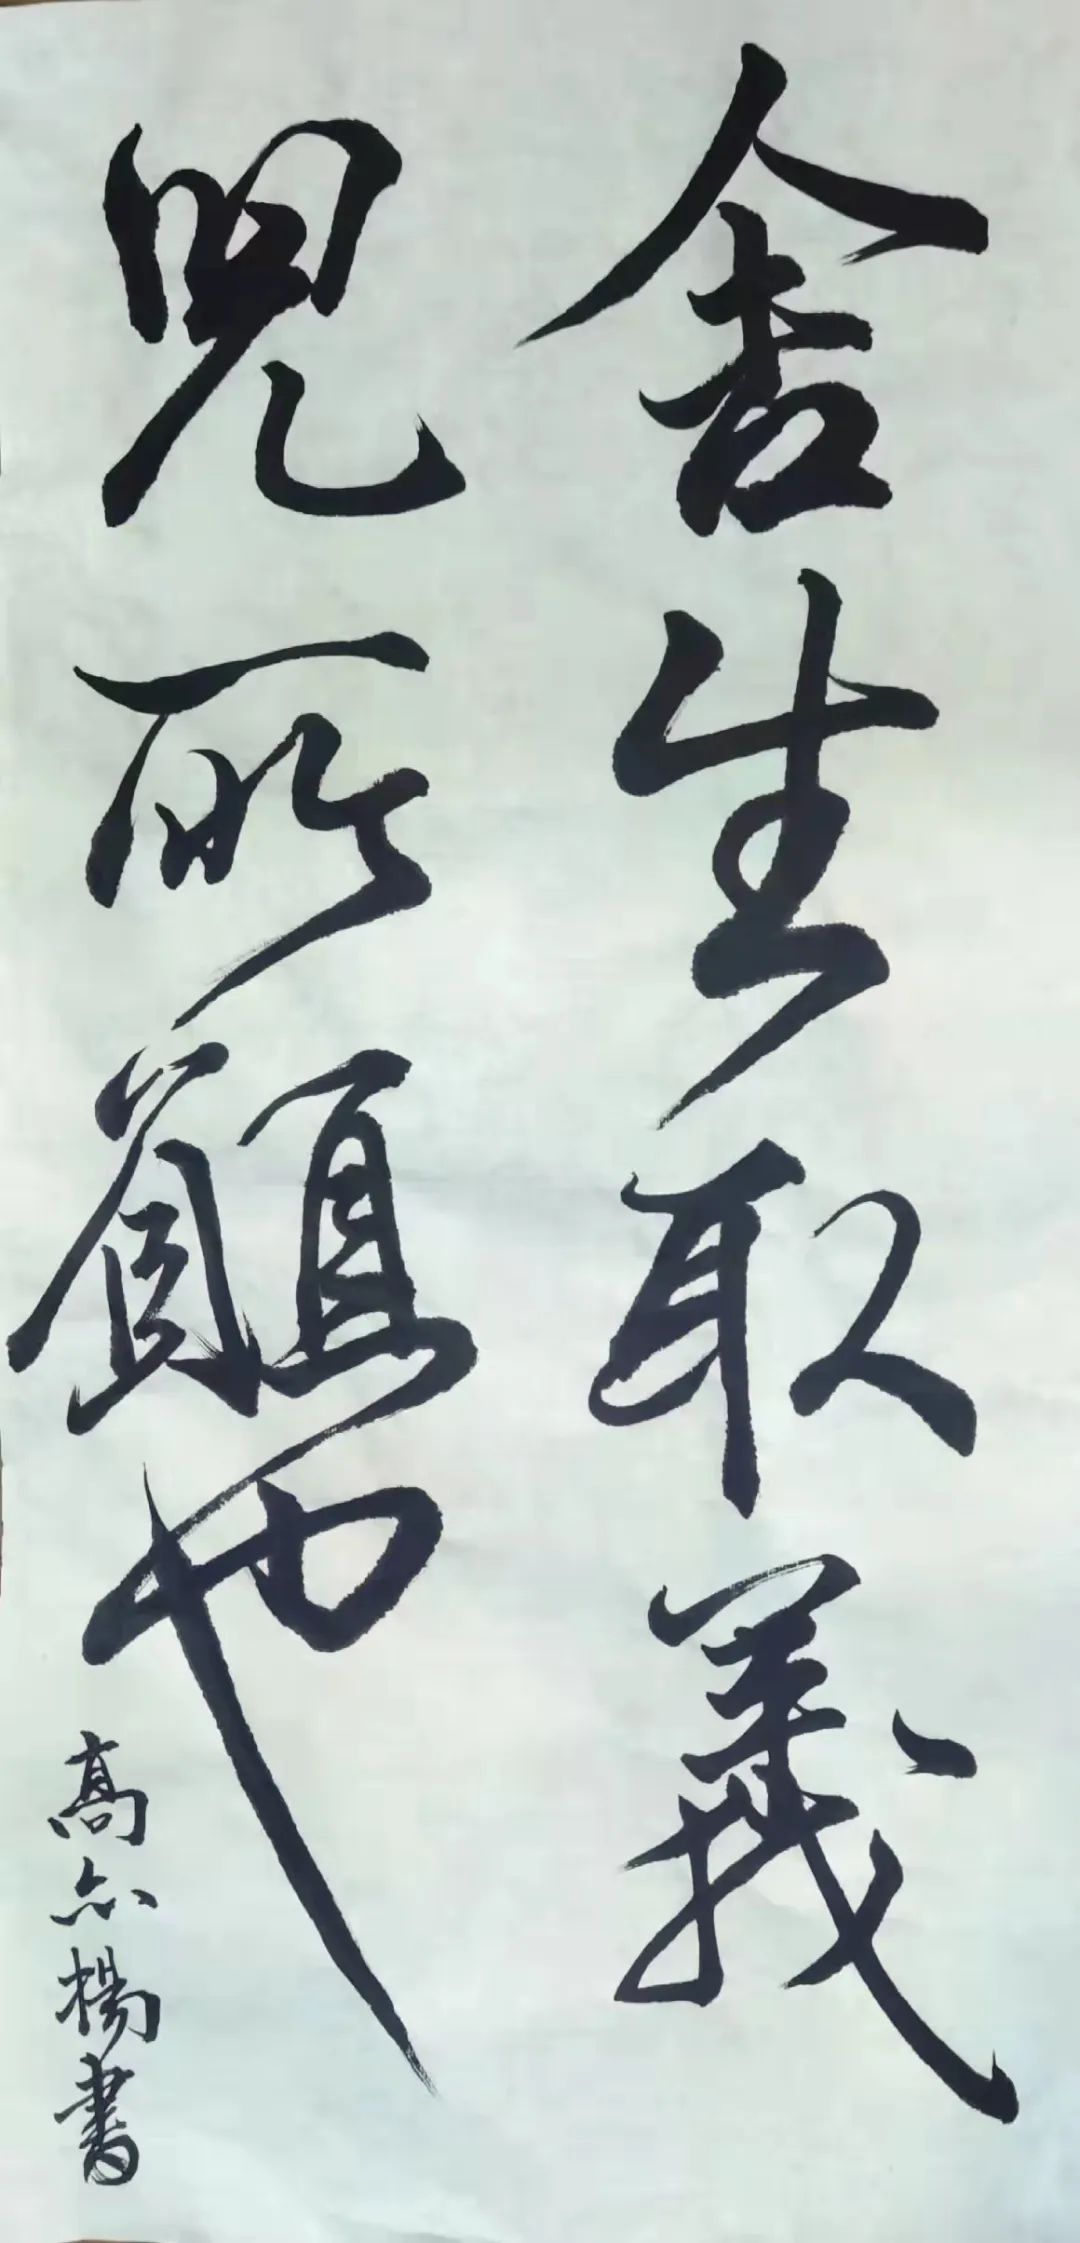 舍生取義
兒所願也
高楊書